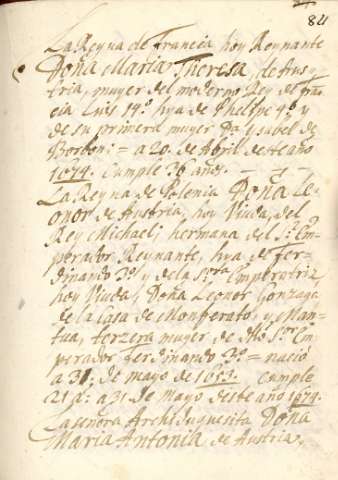 84
La Reyna de Francia hoy Reynante
Doña Maria Theresa, de Aus
tria, muger del moderno Rey de fran
cia Luis 14º hya de Phelipe 4º y
de su primera muger Dª ysabel de
Borbon: = a 20. de Abril de este año
1674. Cumple 36 años.
La Reyna de Polonia Doña Le
onor de Austria, hoy Viuda, del
Rey Michael; hermana del Sr. Em
perador Reynante, hya de Fer
dinando 3º y de la Sra Emperatriz
hoy Viuda, Doña Leonor Gonzaga
de la Casa de Monferato, y Man
tua, terzera muger de dho Sor Em
perador Ferdinando 3º = nació
a 31. de mayo de 1653. Cumple
21 a: a 31. de Mayo deste año 1674.
La señora Archiduquesita Doña
Maria Antonia de Austria,